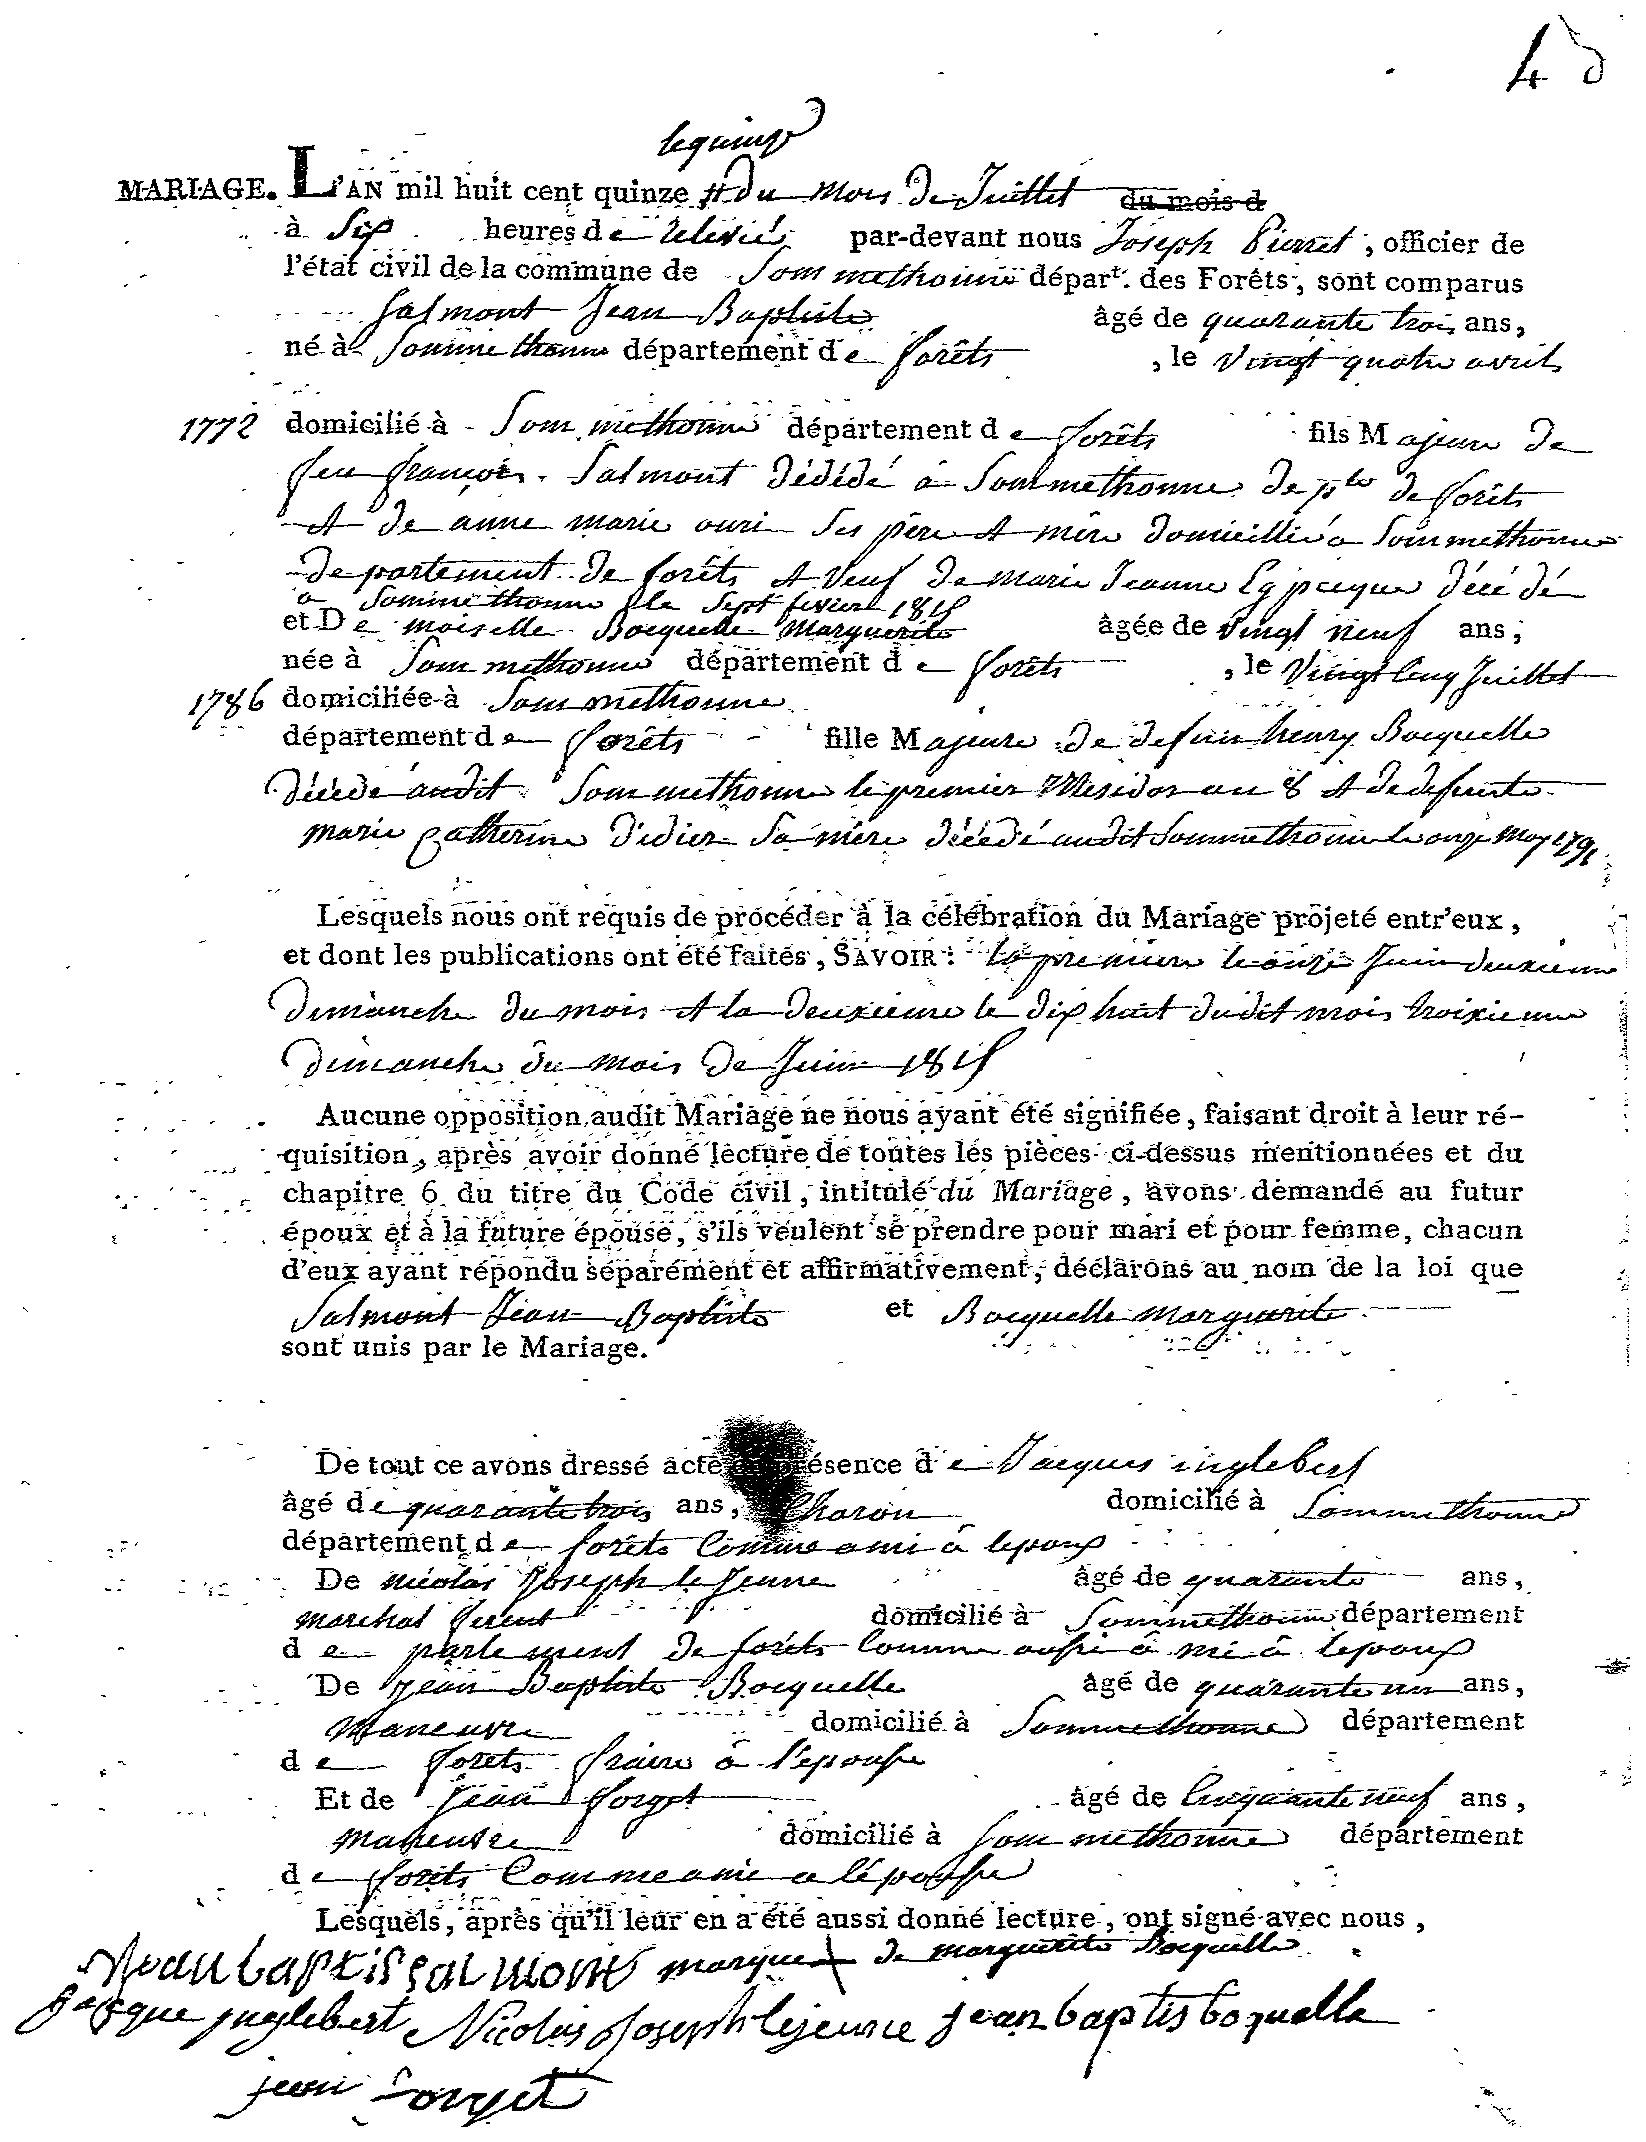 4
le quinze
MARIAGE. L'AN mil huit cent quinze # du mois de Juillet du mois d
à Six heures de relevée par-devant nous Joseph Pierret, officier de
l'état civil de la commune de Sommethonne départ. des Forêts, sont comparus
Salmont Jean Baptiste âgé de quarante trois ans,
né à Sommethonne département de forêts, le vingt quatre avril
1772 domicilié à Sommethonne département de forêts fils Majeur de
feu françois Salmont dédédé à Sommethonne de pte de forêts
et de anne marie ouri ses père et mère domicillié a Sommethonne
departement de forêts et veuf de marie Jeanne décédé
a Sommethonne le Sept fevrier 1815
et Demoiselle Bocquelle Marguerite âgée de vingt neuf ans,
née à Sommethonne département de forêts, le vingt cinq Juillet
1786 domiciliée à Sommethonne
département de forêts fille Majeure de defun henry Bocquelle
décédé audit Sommethonne le premier Messidor an 8 et de defunte
marie Catherine Didier Sa mère décédé audit Sommethonne le onze May 1791
Lesquels nous ont requis de procéder à la célébration du Mariage projeté entr'eux,
et dont les publications ont été faites, SAVOIR : la premiere le onze Juin deuxieme
Dimanche du mois et la deuxieme le dix huit dudit mois troixieme
dimanche du mois de Juin 1815
Aucune opposition audit Mariage ne nous ayant été signifiée, faisant droit à leur ré-
quisition, après avoir donné lecture de toutes les pièces ci-dessus mentionnées et du
chapitre 6 du titre du Code civil, intitulé du Mariage, avons demandé au futur
époux et à la future épouse, s'ils veulent se prendre pour mari et pour femme, chacun
d'eux ayant répondu séparément et affirmativement, déclarons au nom de la loi que
Salmont Jean Baptiste et Bocquelle marguerite
sont unis par le Mariage.
De tout ce avons dressé acte résence de Jacques inglebert
âgé de quarante trois ans, Charon domicilié à Sommethonne
département de forêts Comme ami à lepoux
De nicolas Joseph le Jeune âgé de quarante ans,
marchal ferent domicilié à Sommethonne département
de partement de forêts Comme aussi ami à lepoux
De Jean Baptiste Bocquelle âgé de quarante un ans,
Maneuvre domicilié à Sommethonne département
de forets fraire à l'epousse
Et de Jean forget âgé de Cinquante neuf ans,
maneuvre domicilié à Sommethonne département
de forêts Comme ami a lépousse
Lesquels, après qu'il leur en a été aussi donné lecture, ont signé avec nous,
Jean baptis salmont marque de marguerite Bocquelle
Jacque inglebert Nicolas Joseph lejeune jean baptis boquelle
jean Forget